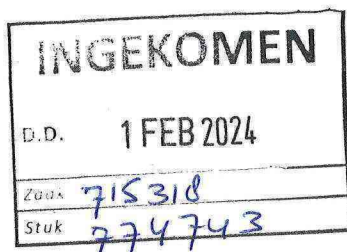 INGEKOMEN
D.D. 1 FEB 2024
Zaak 715318
Stuk 774743